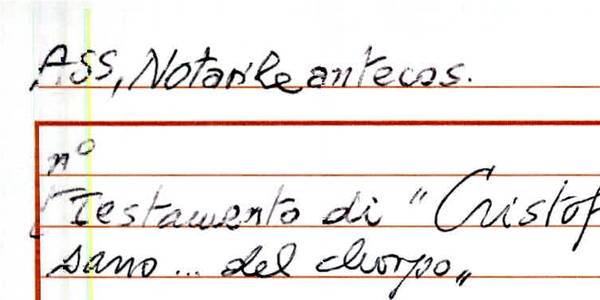 ASS, Notarile antecos.
n°
Testamento di "Cristof
sano... del chorpo"